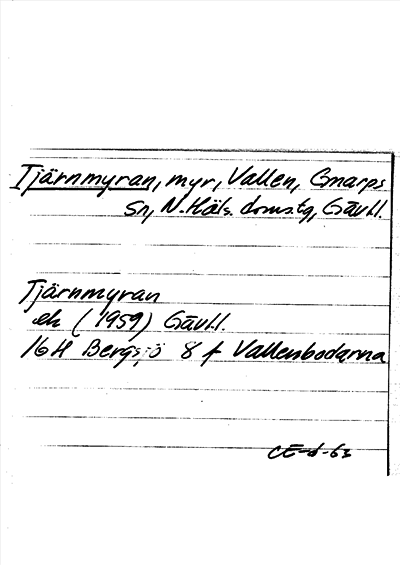 Tjärnmyran, myr, Vallen, Gnarps
sn, N. Häls. doms.tg, Gävl.l.
Tjärnmyran
ek (1959) Gävl.l.
16H Bergsjö 8 f Vallenbodarna
CE-d-63